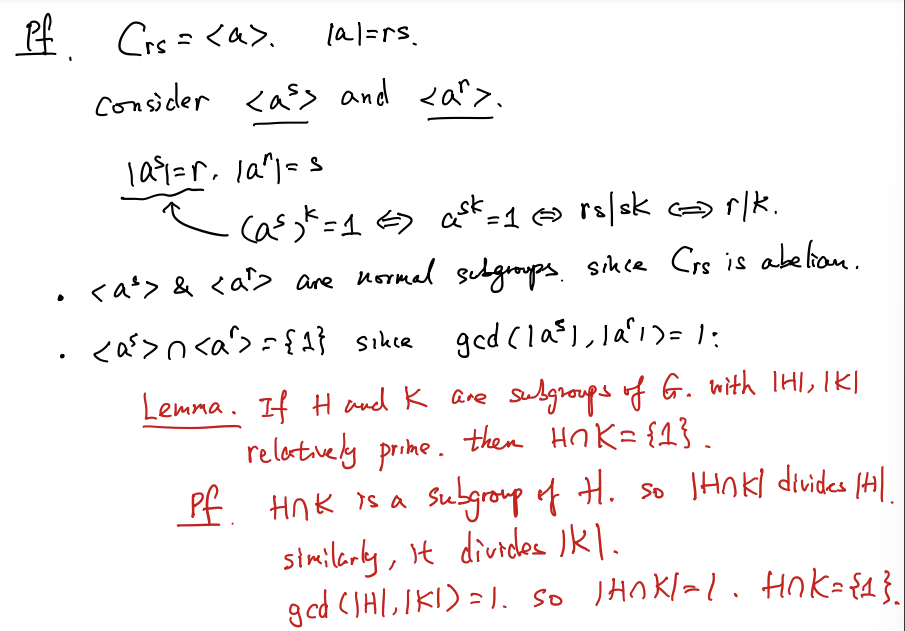 Pf. Crs = <a>. |a|=rs.
Consider <aˢ> and <aʳ>.
|aˢ|=r, |aʳ|= s
(aˢ)ᵏ=1 ⇔ aˢᵏ=1 ⇔ rs|sk ⇔ r|k.
• <aˢ> & <aʳ> are normal subgroups. since Crs is abelian.
• <aˢ>∩<aʳ>={1} since gcd(|aˢ|,|aʳ|)= 1:
Lemma. If H and K are subgroups of G. with |H|,|K|
relatively prime. then H∩K={1}.
Pf. H∩K is a subgroup of H. so |H∩K| divides |H|.
similarly, it divides |K|.
gcd(|H|,|K|)=1. so |H∩K|=1. H∩K={1}.